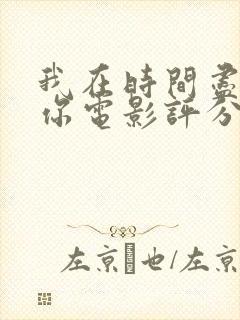 我在時間盡
你電影評分
左京 也/左京